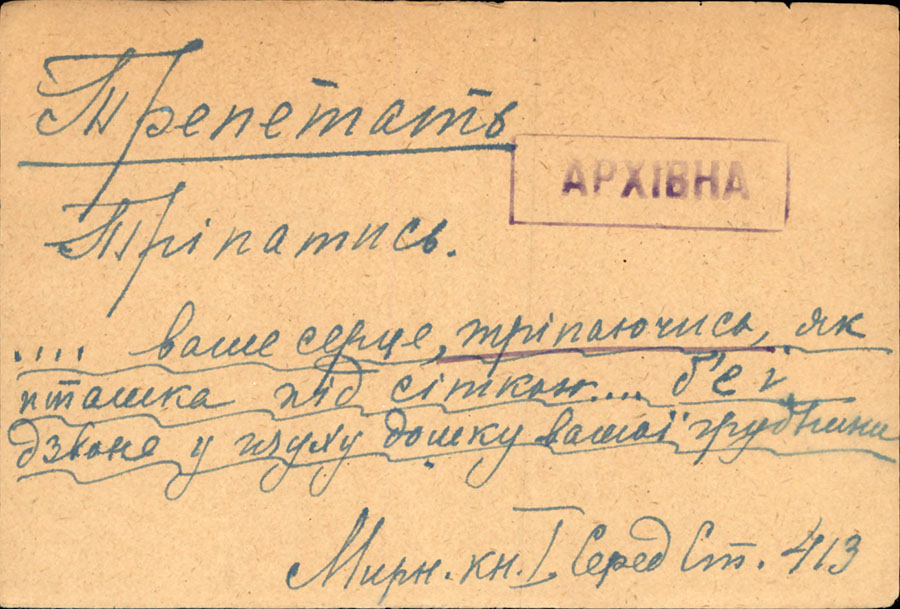 Трепетать
АРХІВНА
Тріпатись.
.... ваше серце, тріпаючись, як
пташка під сіткою.... б'є і
дзвоне у глуху дошку вашої грудини
Мирн. кн. I. Серед Ст. 413